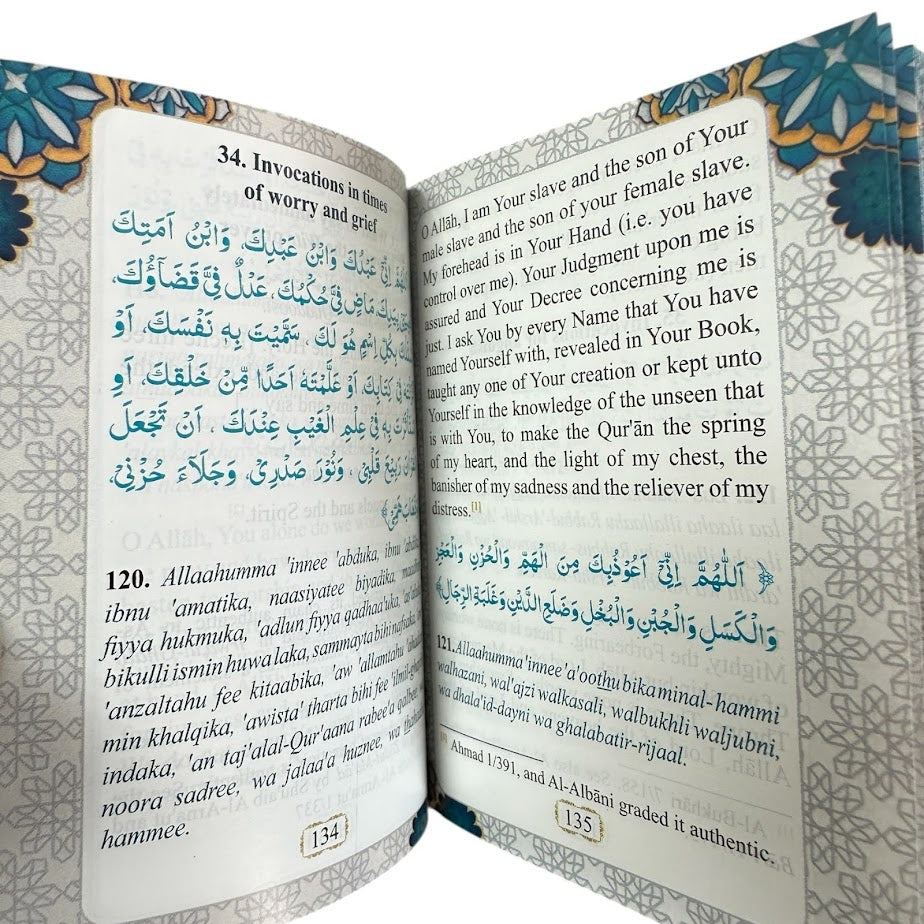 34. Invocations in times
of worry and grief
اِنِّيْ عَبْدُكَ وَابْنُ عَبْدِكَ، وَابْنُ اَمَتِكَ
مَاضٍ فِيَّ حُكْمُكَ، عَدْلٌ فِيَّ قَضَاؤُكَ،
بِكُلِّ اسْمٍ هُوَ لَكَ، سَمَّيْتَ بِهٖ نَفْسَكَ، اَوْ
فِيْ كِتَابِكَ، اَوْ عَلَّمْتَهٗ اَحَدًا مِّنْ خَلْقِكَ، اَوِ
بِهٖ فِيْ عِلْمِ الْغَيْبِ عِنْدَكَ، اَنْ تَجْعَلَ
رَبِيْعَ قَلْبِيْ، وَنُوْرَ صَدْرِيْ، وَجَلَاءَ حُزْنِيْ،
هَمِّيْ﴾
120. Allaahumma 'innee 'abduka, ibnu
ibnu 'amatika, naasiyatee biyadika,
fiyya hukmuka, 'adlun fiyya qadhaa'uka,
bikulli ismin huwa laka, sammayta bihi nafsaka,
'anzaltahu fee kitaabika, 'aw 'allamtahu
min khalqika, 'awista' tharta bihi fee 'ilmil-
indaka, 'an taj'alal-Qur'aana rabee'a
noora sadree, wa jalaa'a huznee, wa
hammee.
134
O Allāh, I am Your slave and the son of Your
male slave and the son of your female slave.
My forehead is in Your Hand (i.e. you have
control over me). Your Judgment upon me is
assured and Your Decree concerning me is
just. I ask You by every Name that You have
named Yourself with, revealed in Your Book,
taught any one of Your creation or kept unto
Yourself in the knowledge of the unseen that
is with You, to make the Qur'ān the spring
of my heart, and the light of my chest, the
banisher of my sadness and the reliever of my
distress.[1]
﴿ اَللّٰهُمَّ اِنِّيْ اَعُوْذُبِكَ مِنَ الْهَمِّ وَالْحُزْنِ وَالْعَجْزِ
وَالْكَسَلِ وَالْجُبْنِ وَالْبُخْلِ وَضَلَعِ الدَّيْنِ وَغَلَبَةِ الرِّجَالِ﴾
121. Allaahumma 'innee 'a'oothu bika minal-hammi
walhazani, wal'ajzi walkasali, walbukhli waljubni,
wa dhala'id-dayni wa ghalabatir-rijaal.
Ahmad 1/391, and Al-Albāni graded it authentic.
135